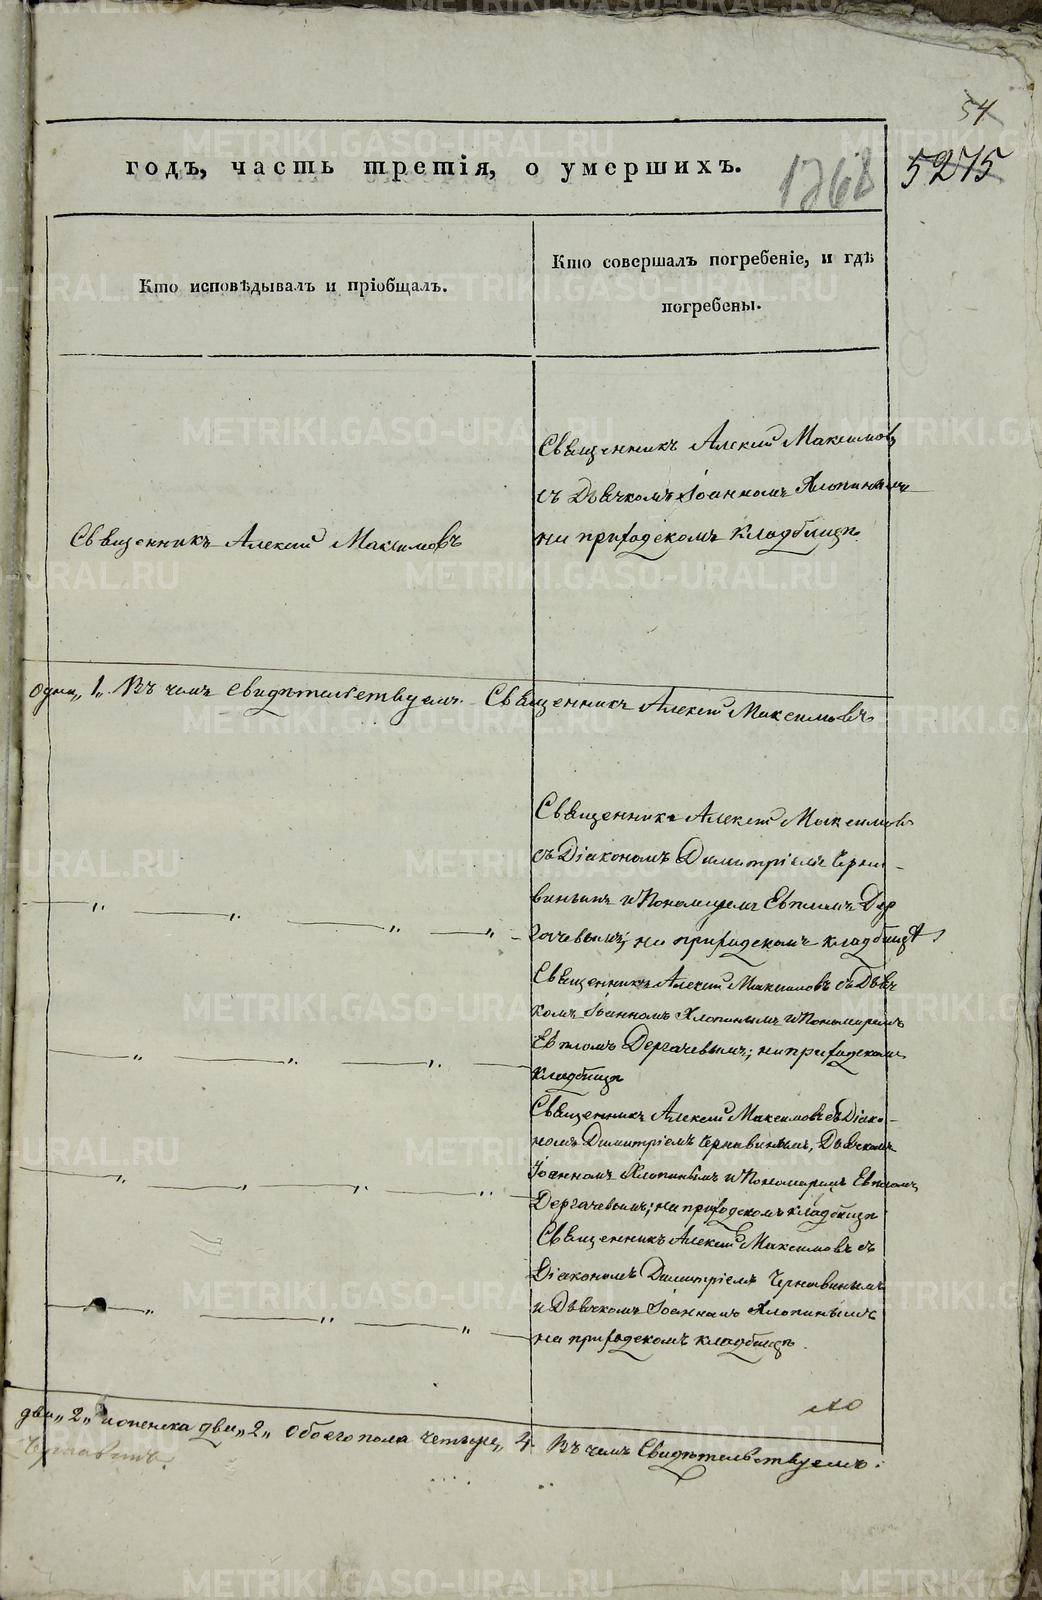 54
годъ, часть третія, о умершихъ.
1268
5275
Кто исповѣдывалъ и пріобщалъ.
Кто совершалъ погребеніе, и гдѣ
погребены.
Священникъ Алексій Максимовъ
Священникъ Алексій Максимовъ
съ Дьячкомъ Іоанномъ Хлопинымъ
на приходскомъ кладбищѣ.
одна „1„ Въ чемъ свидѣтельствуемъ. Священникъ Алексій Максимовъ
Священникъ Алексій Максимовъ
съ Діакономъ Димитріемъ Черна-
винымъ и Пономаремъ Евпломъ Дер
гачевымъ; на приходскомъ кладбищѣ
Священникъ Алексій Максимовъ съ Дьяч
комъ Іоанномъ Хлопинымъ и Пономаремъ
Евпломъ Дергачевымъ; на приходскомъ
кладбищѣ
Священникъ Алексій Максимовъ съ Діако-
номъ Димитріемъ Чернавинымъ, Дьячкомъ
Іоанномъ Хлопинымъ и Пономаремъ Евпломъ
Дергачевымъ; на приходскомъ кладбищѣ
Священникъ Алексій Максимовъ съ
Діакономъ Димитріемъ Чернавинымъ
и Дьячкомъ Іоанномъ Хлопинымъ
на приходскомъ кладбищѣ.
два „2„ и женска два „2„ обоего пола четыре „4. Въ чемъ Свидѣтельствуемъ: